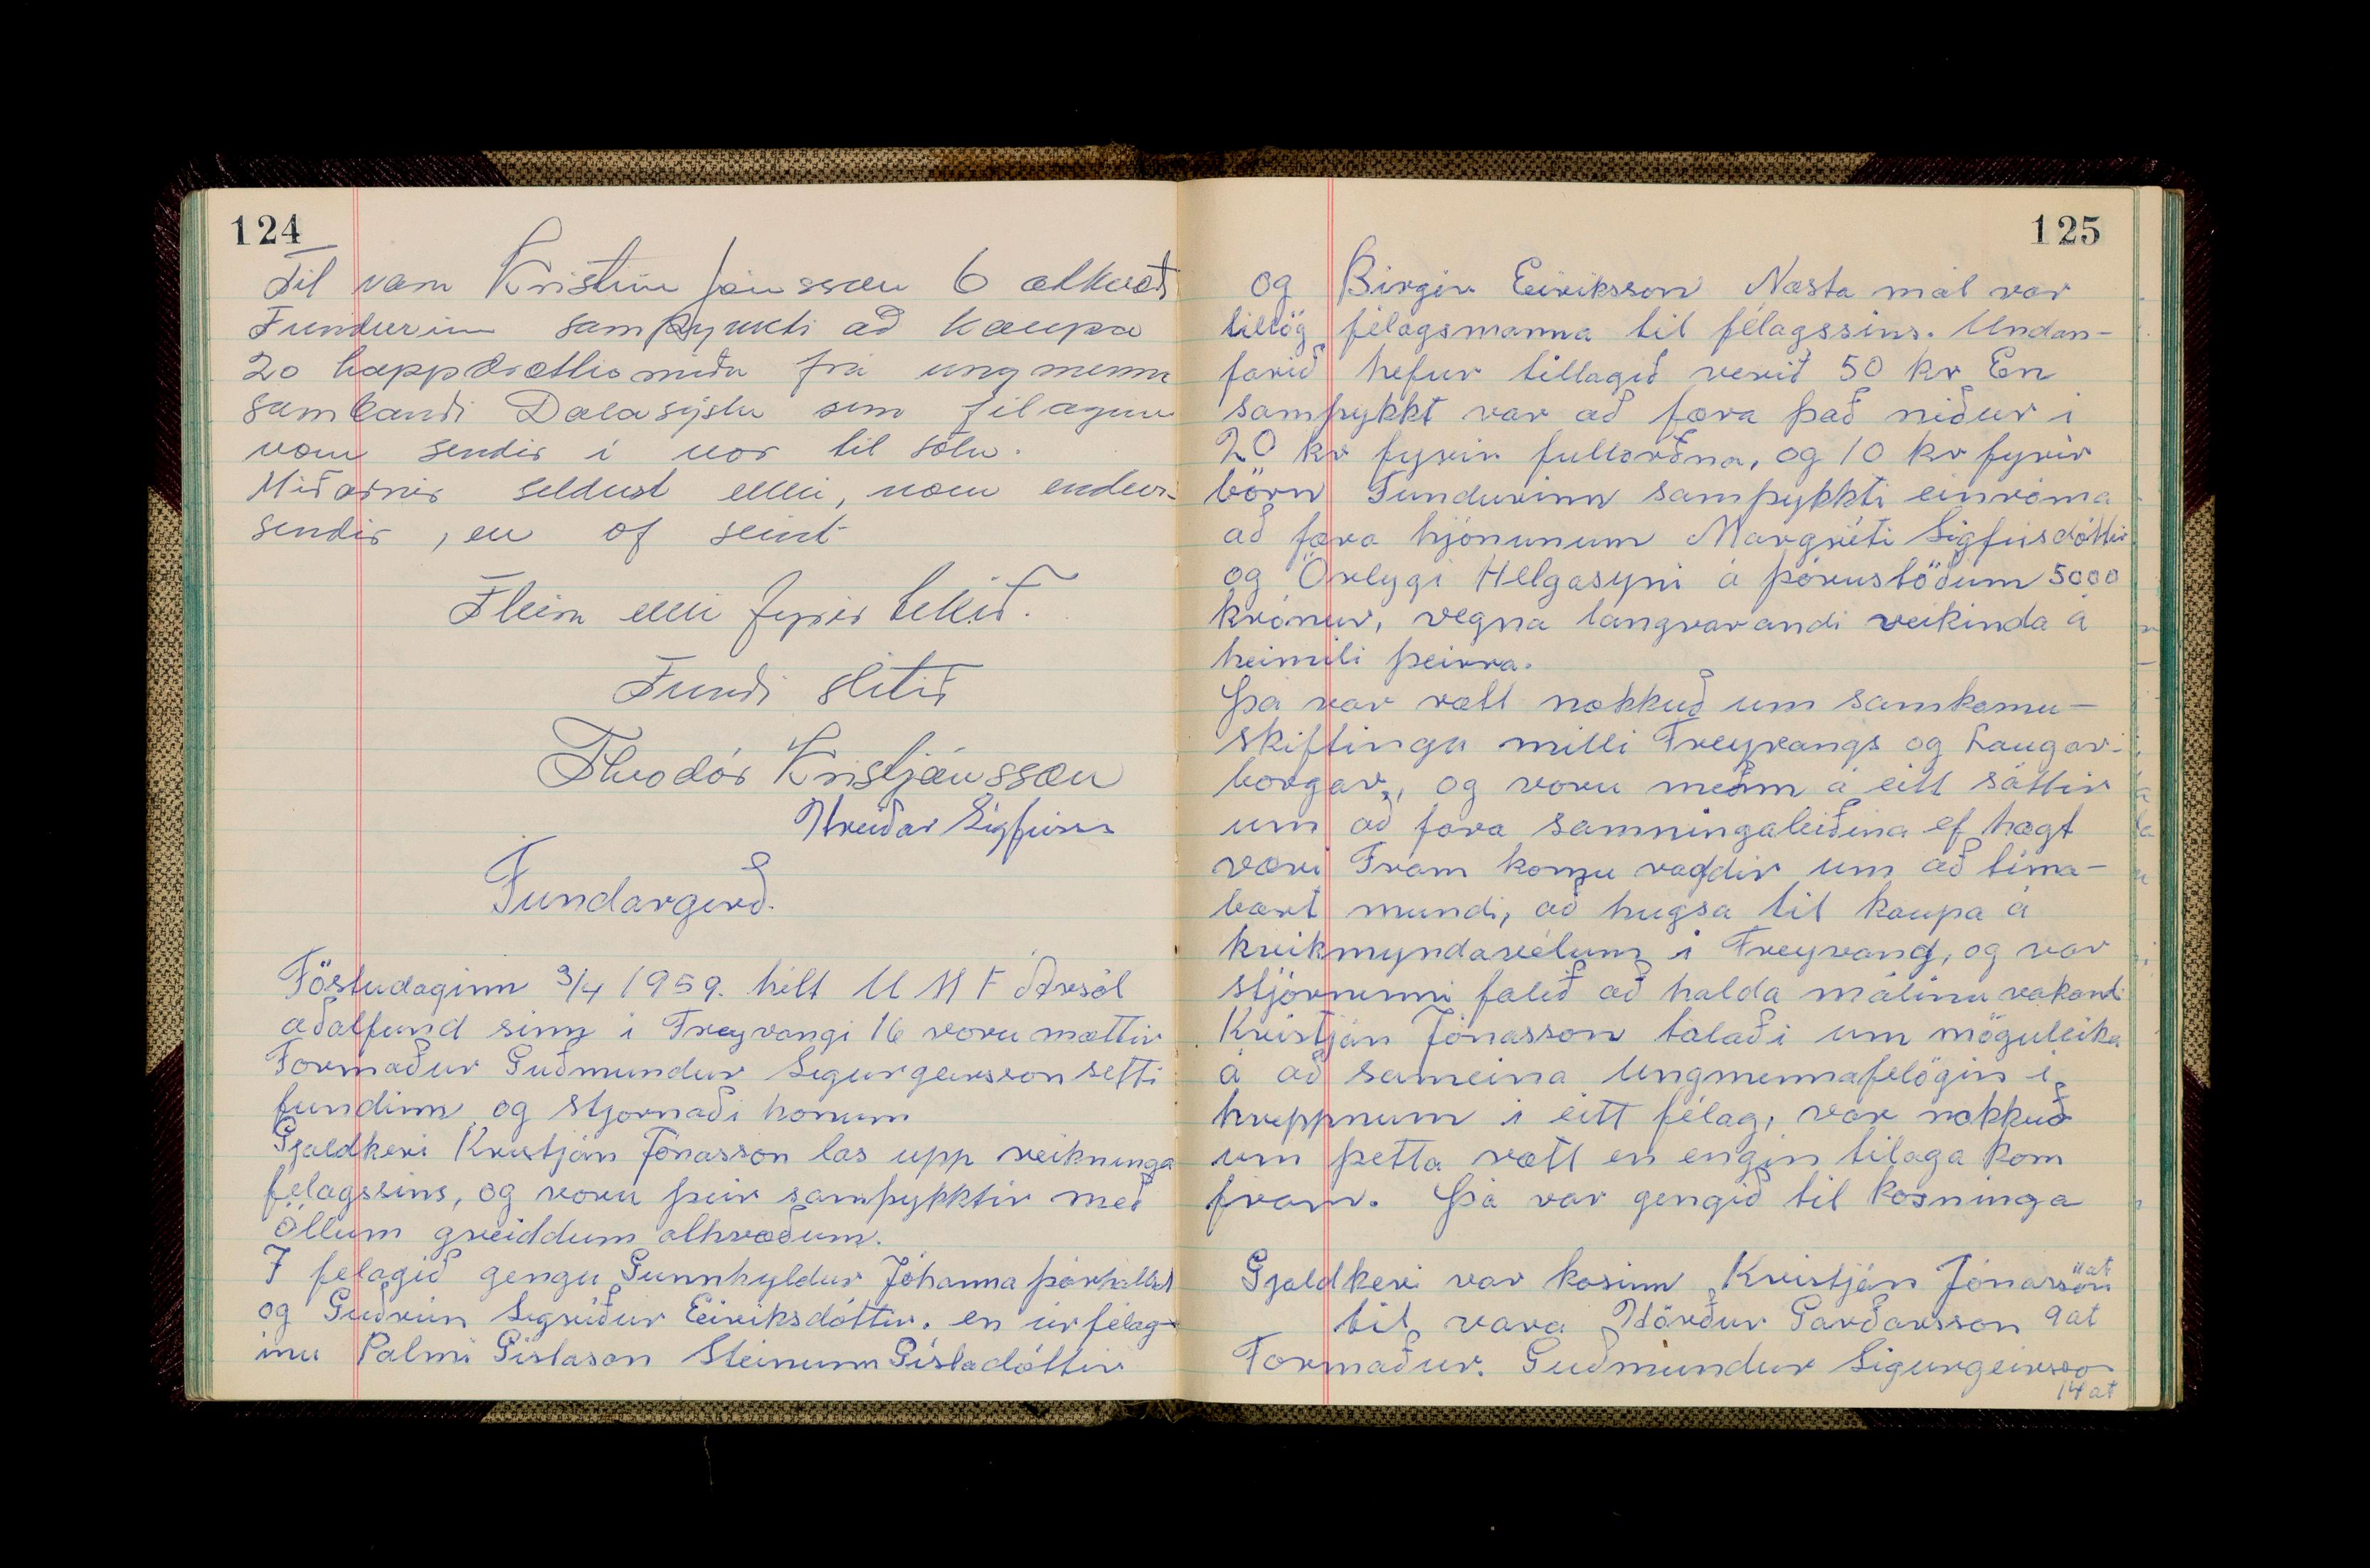 124
Til vara Kristinn Jónsson 6 atkvæði
Fundurinn samþykkti að kaupa
20 happdrættismiða frá ungmenna
sambandi Dalasýslu sem félaginu
voru sendir í vor til sölu.
Miðarnir seldust ekki, voru endur-
sendir, en of seint
Fleira ekki fyrir tekið.
Fundi slitið
Theodór Kristjánsson
Hreiðar Sigfúss
Fundargerð.
Föstudaginn 3/4 1959. hélt U M F Ársól
aðalfund sinn i Freyvangi 16 voru mættir
Formaður Guðmundur Sigurgeirsson setti
fundinn og stjornaði honum
Gjaldkeri Kristján Jónasson las upp reikninga
félagssins, og voru þeir samþykktir með
öllum greiddum atkvæðum.
I felagið gengu Gunnhyldur Jóhanna Þórhallsd
og Guðrún Sigríður Eiríksdóttir. en úr félag-
inu Palmi Gislason Steinunn Gísladóttir
125
og Birgir Eiríksson Næsta mál var
tillög félagsmanna til félagssins. Undan-
farið hefur tillagið verið 50 kr En
samþykkt var að færa það niður i
20 kr fyrir fullorðna, og 10 kr fyrir
börn Fundurinn samþykkti einróma
að færa hjónunum Margréti Sigfúsdóttir
og Örlygi Helgasyni á Þórustöðum 5000
krónur, vegna langvarandi veikinda á
heimili þeirra.
Þá var rætt nokkuð um samkomu-
skiftingu milli Freyvangs og Laugar-
borgar, og voru menn á eitt sáttir
um að fara samningaleiðina ef hægt
væri Fram komu raddir um að tíma-
bært mundi, að hugsa til kaupa á
kvikmyndavélum i Freyvang, og var
stjórninni falið að halda málinu vakandi
Kristján Jónasson talaði um möguleika
á að sameina Ungmennafelögin í
hreppnum i eitt félag, var nokkuð
um þetta rætt en engin tilaga kom
fram. Þá var gengið til kosninga
Gjaldkeri var kosinn Kristján Jónasson 11 at
til vara Hörður Garðarsson 9 at
Formaður. Guðmundur Sigurgeirsso
14 at